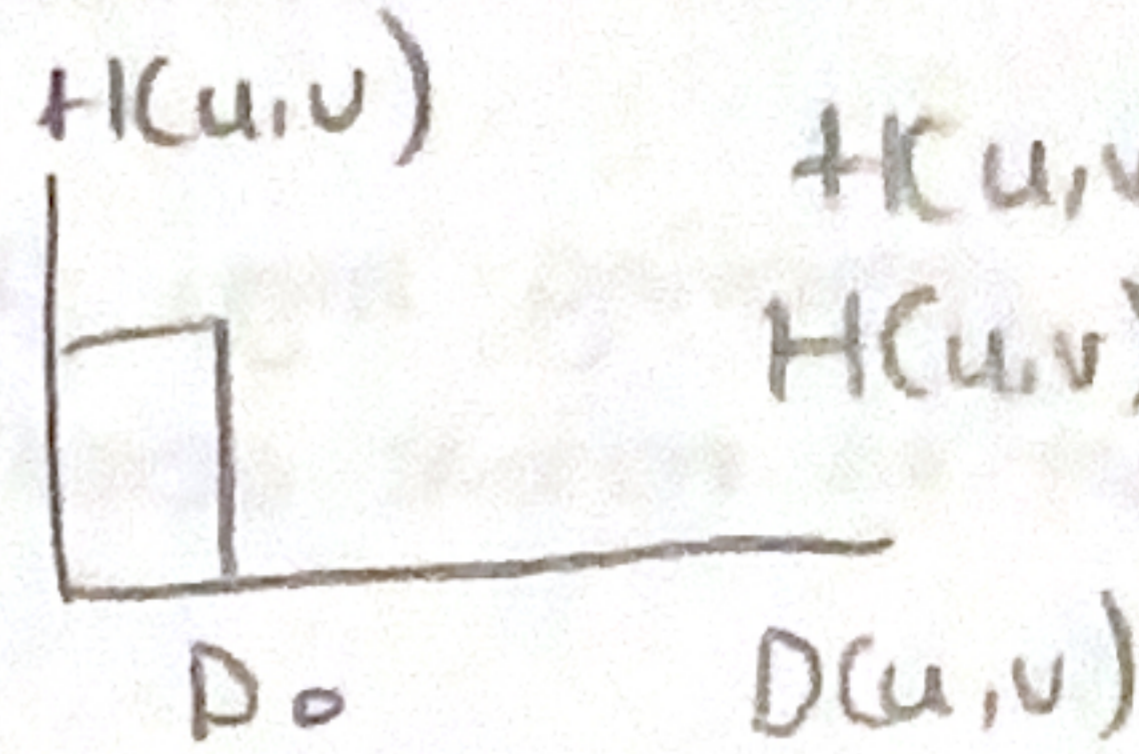 H(u,v)
H(u,v
H(u,v)
D₀
D(u,v)